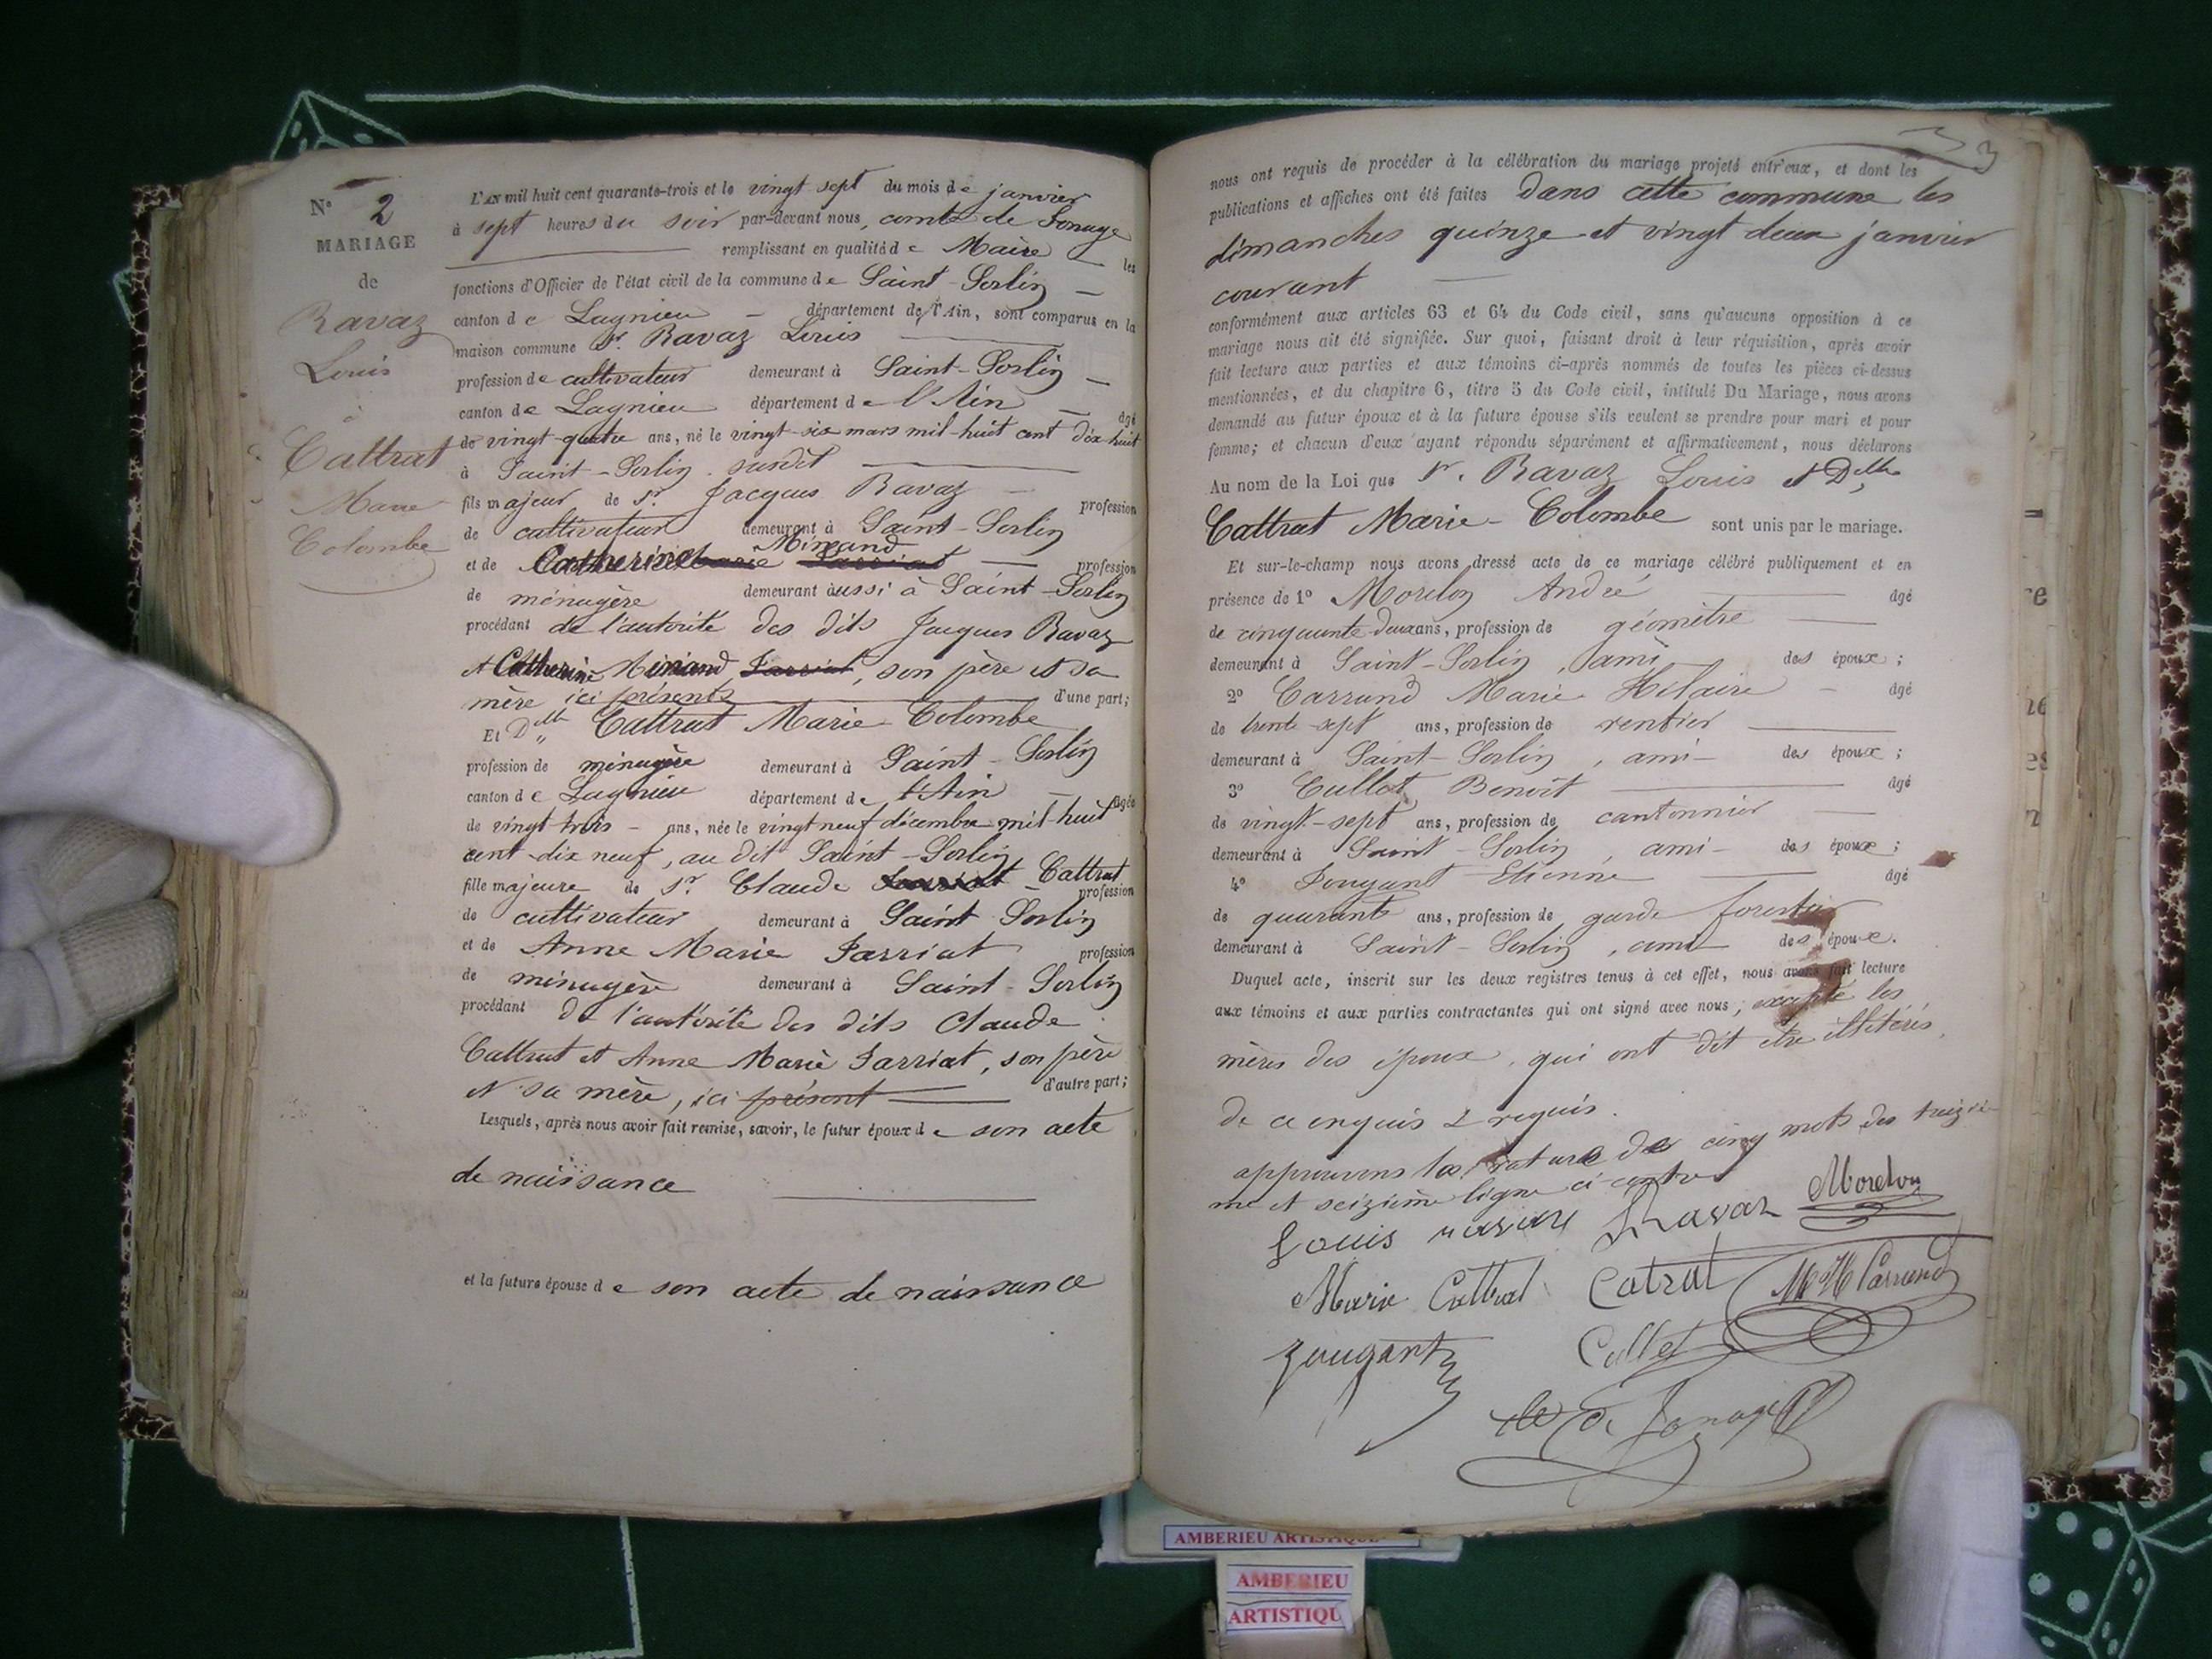 N° 2
MARIAGE
de
Ravaz
Louis
à
Cattrat
Marie
Colombe
L'AN mil huit cent quarante-trois et le vingt sept du mois de janvier
à sept heures du soir par-devant nous, comte de Sonage
remplissant en qualité de Maire les
fonctions d'Officier de l'état civil de la commune de Saint-Sorlin
canton de Lagnieu département de l'Ain, sont comparus en la
maison commune Sr. Ravaz Louis
profession de cultivateur demeurant à Saint-Sorlin
canton de Lagnieu département de l'Ain âgé
de vingt-quatre ans, né le vingt-six mars mil-huit cent dix-huit
à Saint-Sorlin susdit
fils majeur de Sr. Jacques Ravaz profession
de cultivateur demeurant à Saint-Sorlin
et de Catherine Minand profession
de ménagère demeurant aussi à Saint-Sorlin
procédant de l'autorité des dits Jacques Ravaz
et Catherine Minand Jarriat, son père et sa
mère ici présents d'une part;
Et Dlle Cattrat Marie-Colombe
profession de ménagère demeurant à Saint-Sorlin
canton de Lagnieu département de l'Ain âgée
de vingt-trois ans, née le vingt neuf décembre mil-huit
cent-dix neuf, au dit Saint-Sorlin
fille majeure de Sr. Claude Jarriat Cattrat
profession
de cultivateur demeurant à Saint Sorlin
et de Anne Marie Jarriat profession
de ménagère demeurant à Saint-Sorlin
procédant de l'autorité des dits Claude
Cattrat et Anne Marie Jarriat, son père
et sa mère, ici présent d'autre part;
Lesquels, après nous avoir fait remise, savoir, le futur époux de son acte
de naissance
et la future épouse de son acte de naissance
3
nous ont requis de procéder à la célébration du mariage projeté entr'eux, et dont les
publications et affiches ont été faites Dans cette commune les
dimanches quinze et vingt deux janvier
courant
conformément aux articles 63 et 64 du Code civil, sans qu'aucune opposition à ce
mariage nous ait été signifiée. Sur quoi, faisant droit à leur réquisition, après avoir
fait lecture aux parties et aux témoins ci-après nommés de toutes les pièces ci-dessus
mentionnées, et du chapitre 6, titre 5 du Code civil, intitulé Du Mariage, nous avons
demandé au futur époux et à la future épouse s'ils veulent se prendre pour mari et pour
femme; et chacun d'eux ayant répondu séparément et affirmativement, nous déclarons
Au nom de la Loi que Sr. Ravaz Louis et Dlle
Cattrat Marie-Colombe sont unis par le mariage.
Et sur-le-champ nous avons dressé acte de ce mariage célébré publiquement et en
présence de 1° Morelon André âgé
de cinquante-deux ans, profession de géomètre
demeurant à Saint-Sorlin, ami des époux;
2° Carrand Marie Hilaire âgé
de trente-sept ans, profession de rentier
demeurant à Saint-Sorlin, ami des époux;
3° Cullet Benoit âgé
de vingt-sept ans, profession de cantonnier
demeurant à Saint-Sorlin, ami des époux;
4° Jougant Etienne âgé
de quarante ans, profession de garde forestier
demeurant à Saint-Sorlin, ami des époux.
Duquel acte, inscrit sur les deux registres tenus à cet effet, nous avons fait lecture
aux témoins et aux parties contractantes qui ont signé avec nous; excepté les
mères des époux, qui ont dit être illitérés,
de ce enquis & requis.
approuvons la rature de cinq mots des treiziè-
me et seizième ligne ci contre
Louis ravaz Ravaz Morelon
Marie Cattrat Catrat M H Carrand
Jougant Cullet
Cte de Sonage
AMBERIEU ARTISTIQUE
AMBERIEU
ARTISTIQU